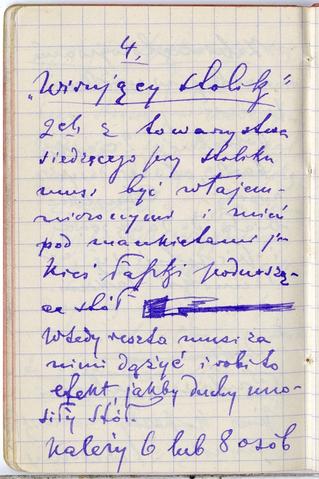 4.
„Wirujący stolik”
2ch z towarzystwa
siedzącego przy stoliku
musi być wtajem-
niczonymi i mieć
pod mankietami ja-
kieś łapki podnoszą-
ce stół
wtedy reszta musi za
nimi dążyć i robi to
efekt, jakby duchy uno-
siły stół.
należy 6 lub 8 osób